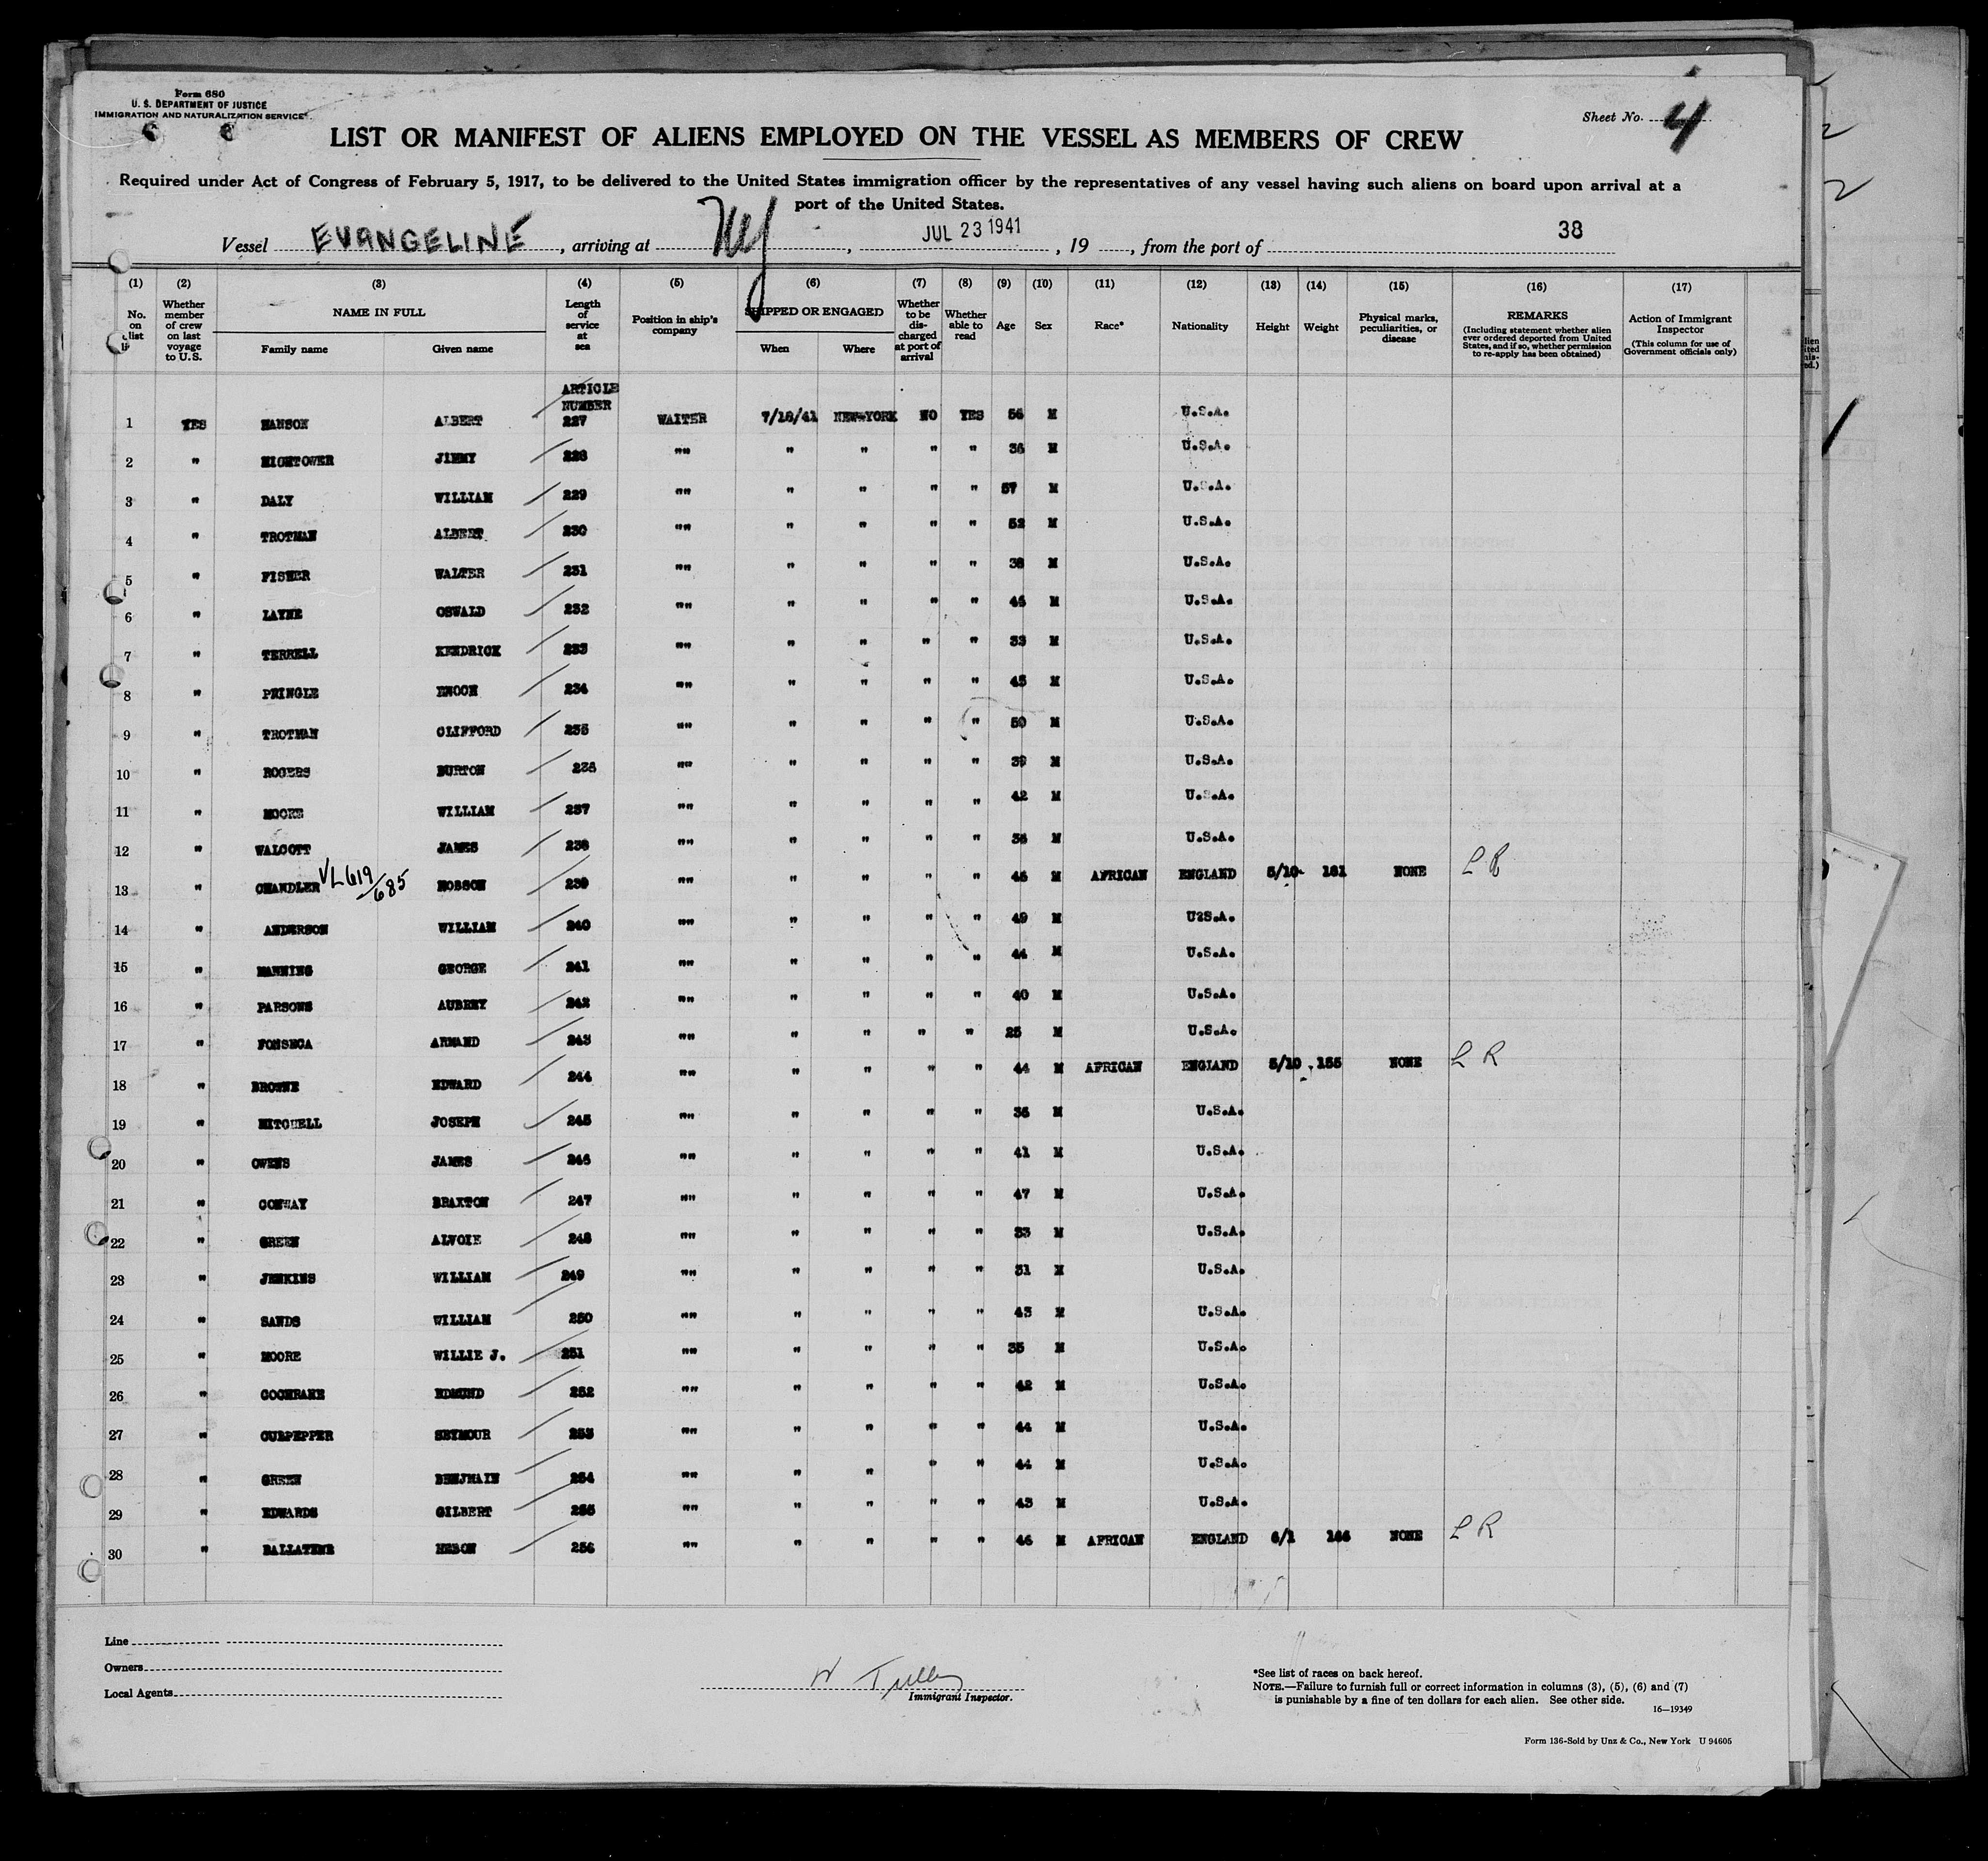 Form 680
U. S. DEPARTMENT OF JUSTICE
IMMIGRATION AND NATURALIZATION SERVICE
Sheet No. 4
LIST OR MANIFEST OF ALIENS EMPLOYED ON THE VESSEL AS MEMBERS OF CREW
Required under Act of Congress of February 5, 1917, to be delivered to the United States immigration officer by the representatives of any vessel having such aliens on board upon arrival at a
port of the United States.
38
Vessel EVANGELINE, arriving at NY, JUL 23 1941, 19, from the port of
(1) (2) (3) (4) (5) (6) (7) (8) (9) (10) (11) (12) (13) (14) (15) (16) (17)
No. on list
Whether member of crew on last voyage to U.S.
NAME IN FULL
Family name Given name
Length of service at sea
Position in ship's company
SHIPPED OR ENGAGED
When Where
Whether to be discharged at port of arrival
Whether able to read
Age
Sex
Race*
Nationality
Height
Weight
Physical marks, peculiarities, or disease
REMARKS
(Including statement whether alien ever ordered deported from United States, and if so, whether permission to re-apply has been obtained)
Action of Immigrant Inspector
(This column for use of Government officials only)
ARTICLE
NUMBER
1 YES HANSON ALBERT 227 WAITER 7/18/41 NEW YORK NO YES 56 M U.S.A.
2 " HIGHTOWER JIMMY 228 "" " " " " 36 M U.S.A.
3 " DALY WILLIAM 229 "" " " " " 57 M U.S.A.
4 " TROTMAN ALBERT 230 "" " " " " 52 M U.S.A.
5 " FISHER WALTER 231 "" " " " " 38 M U.S.A.
6 " LAYNE OSWALD 232 "" " " " " 46 M U.S.A.
7 " TERRELL KENDRICK 233 "" " " " " 33 M U.S.A.
8 " PRINGLE ENOCH 234 "" " " " " 45 M U.S.A.
9 " TROTMAN CLIFFORD 235 "" " " " " 50 M U.S.A.
10 " ROGERS BURTON 236 "" " " " " 39 M U.S.A.
11 " MOORE WILLIAM 237 "" " " " " 42 M U.S.A.
12 " WALCOTT JAMES 238 "" " " " " 36 M U.S.A.
13 " CHANDLER VL619/685 HOBSON 239 "" " " " " 46 M AFRICAN ENGLAND 5/10 181 NONE L R
14 " ANDERSON WILLIAM 240 "" " " " " 49 M U2S.A.
15 " MANNING GEORGE 241 "" " " " " 44 M U.S.A.
16 " PARSONS AUBREY 242 "" " " " " 40 M U.S.A.
17 " FONSECA ARMAND 243 "" " " " " 25 M U.S.A.
18 " BROWNE EDWARD 244 "" " " " " 44 M AFRICAN ENGLAND 5/10 155 NONE L R
19 " MITCHELL JOSEPH 245 "" " " " " 36 M U.S.A.
20 " OWENS JAMES 246 "" " " " " 41 M U.S.A.
21 " CONWAY BRAXTON 247 "" " " " " 47 M U.S.A.
22 " GREEN ALVOIE 248 "" " " " " 33 M U.S.A.
23 " JENKINS WILLIAM 249 "" " " " " 31 M U.S.A.
24 " SANDS WILLIAM 250 "" " " " " 43 M U.S.A.
25 " MOORE WILLIE J. 251 "" " " " " 35 M U.S.A.
26 " COCHRANE EDMUND 252 "" " " " " 42 M U.S.A.
27 " CULPEPPER SEYMOUR 253 "" " " " " 44 M U.S.A.
28 " GREEN BENJMAIN 254 "" " " " " 44 M U.S.A.
29 " EDWARDS GILBERT 255 "" " " " " 43 M U.S.A.
30 " BALLATYNE HEBON 256 "" " " " " 46 M AFRICAN ENGLAND 6/1 146 NONE L R
Line
Owners
Local Agents
Immigrant Inspector.
*See list of races on back hereof.
NOTE.—Failure to furnish full or correct information in columns (3), (5), (6) and (7)
is punishable by a fine of ten dollars for each alien. See other side.
16—19349
Form 136-Sold by Unz & Co., New York U 94605